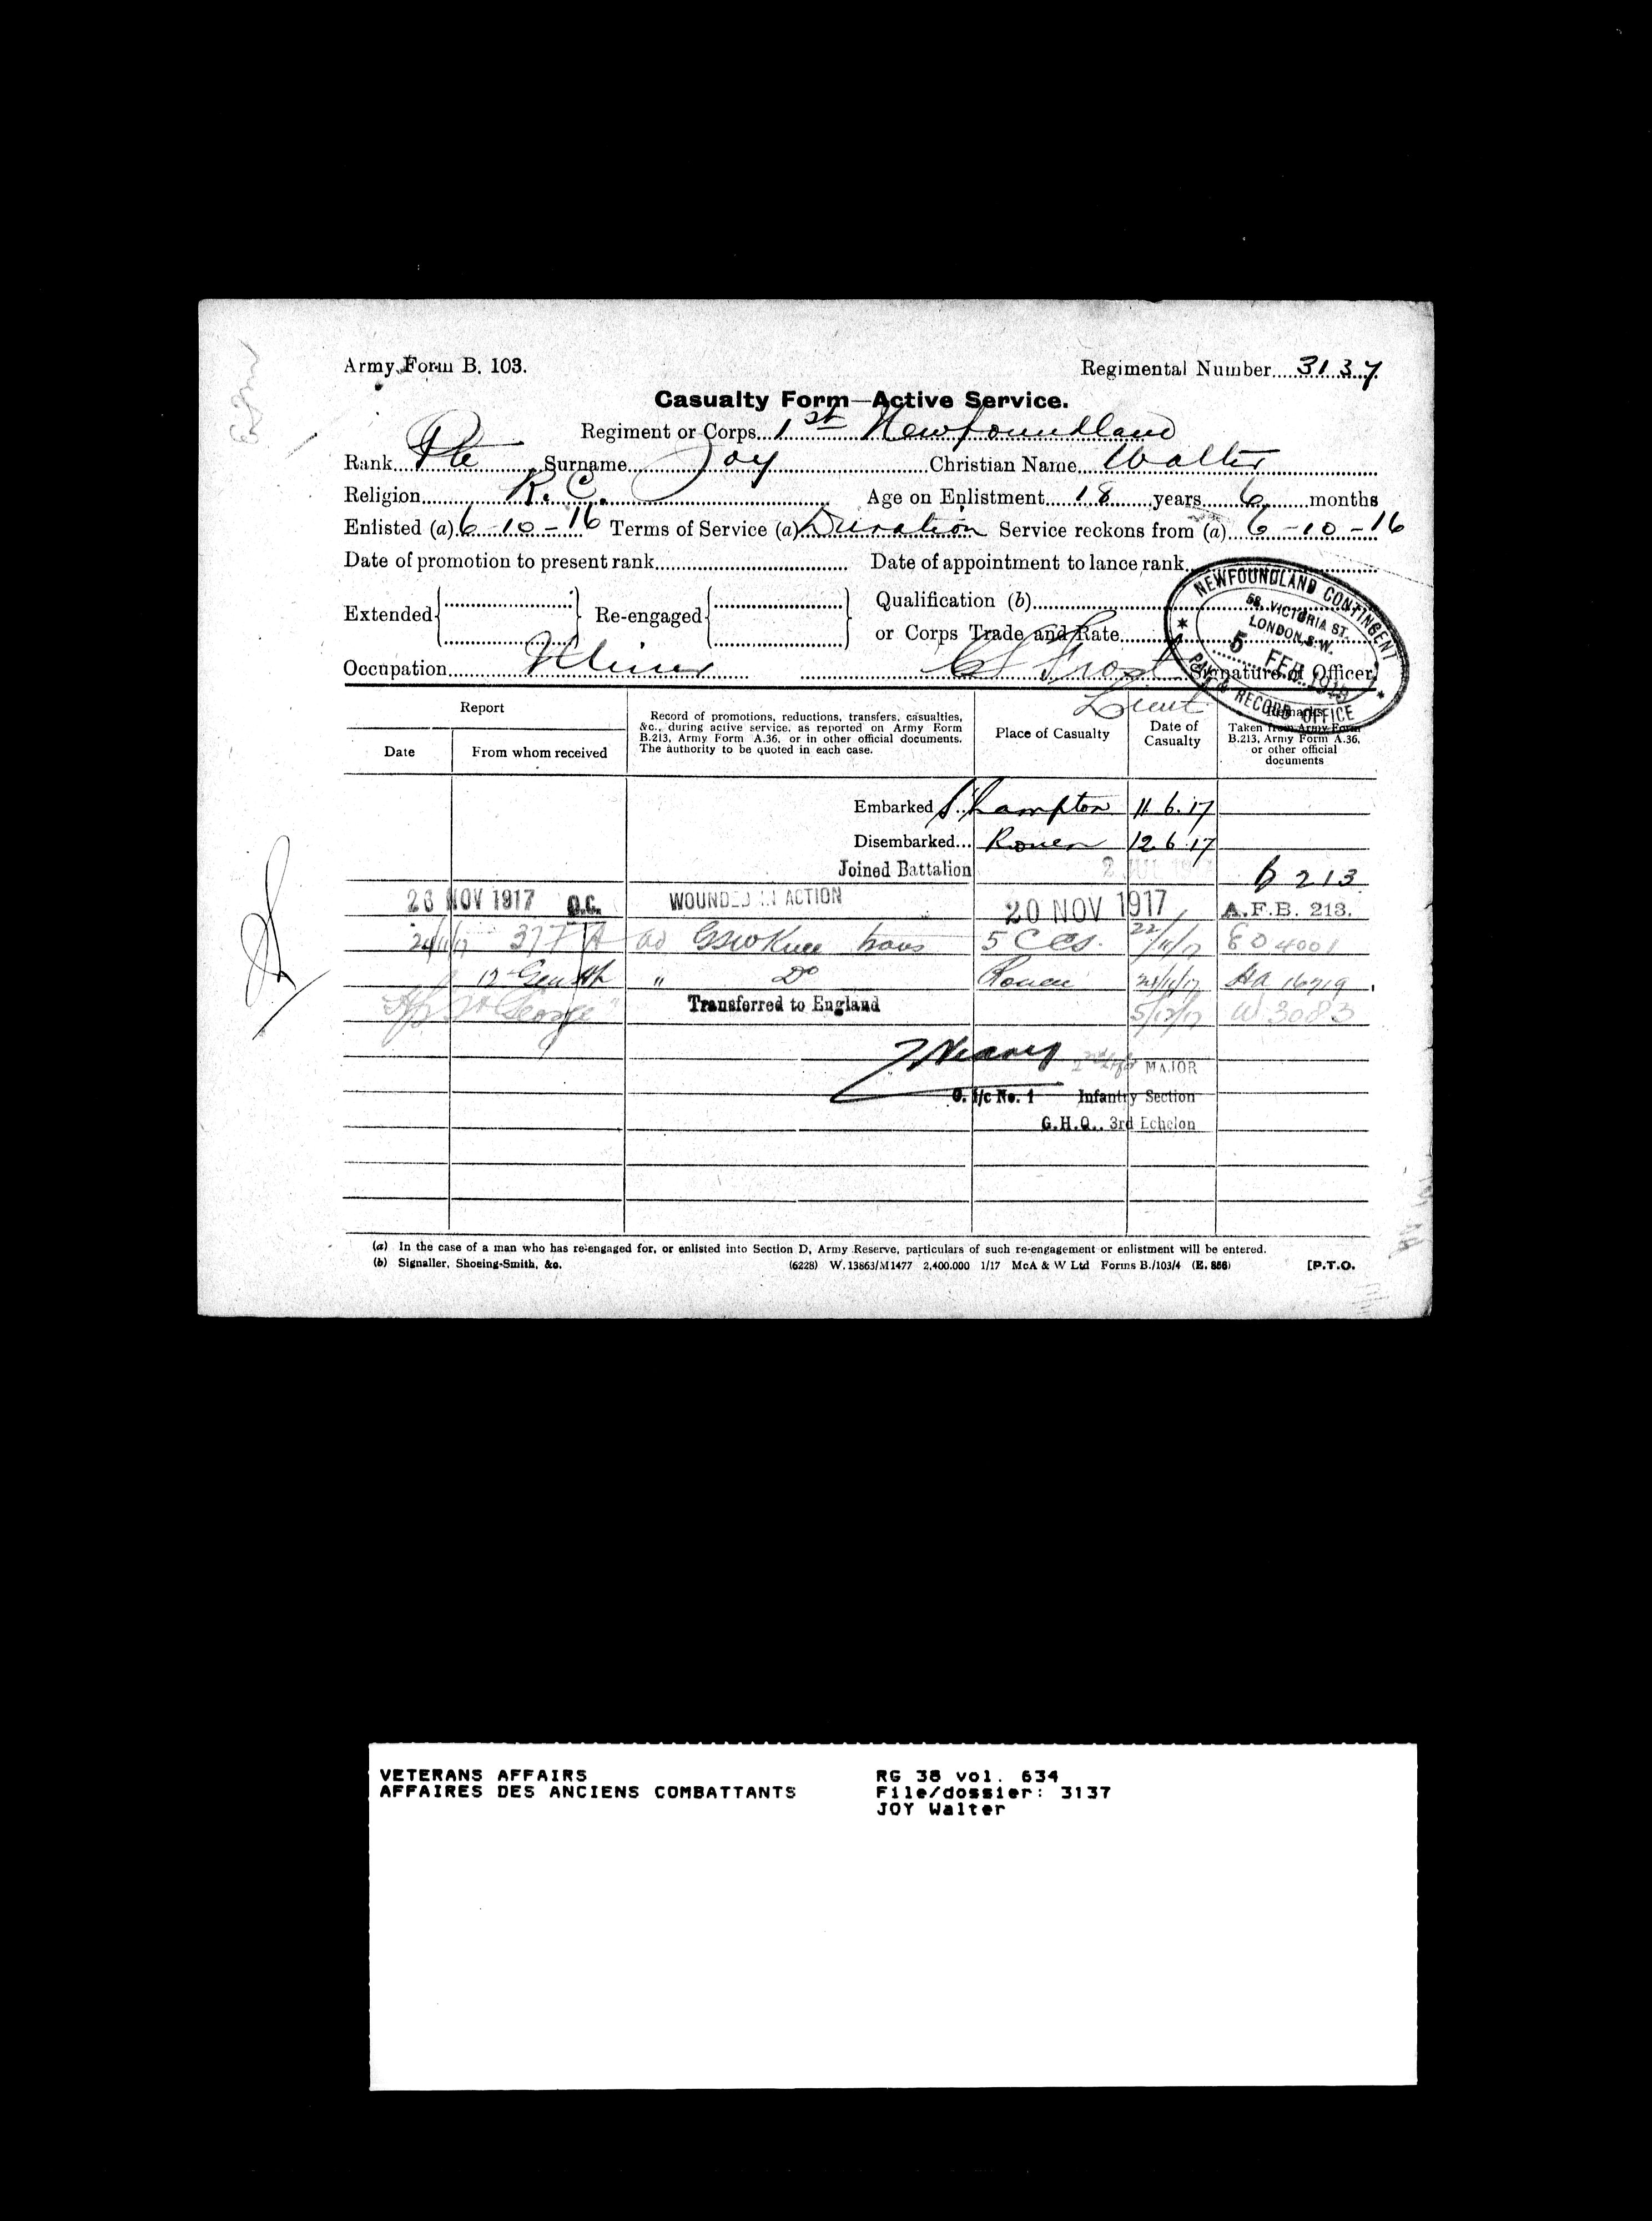 Army Form B. 103.
Regimental Number 3137
Casualty Form—Active Service.
Regiment or Corps 1st Newfoundland
Rank Pte Surname Joy Christian Name Walter
Religion R.C. Age on Enlistment 18 years 6 months
Enlisted (a) 6-10-16 Terms of Service (a) Duration Service reckons from (a) 6-10-16
Date of promotion to present rank Date of appointment to lance rank
Extended Re-engaged Qualification (b)
or Corps Trade and Rate
Occupation Miner Frost Signature of Officer
Lieut
NEWFOUNDLAND CONTINGENT
58, VICTORIA ST.
LONDON, S.W.
5 FEB
PAY & RECORD OFFICE
Report
Date From whom received
Record of promotions, reductions, transfers, casualties, &c., during active service, as reported on Army Form B.213, Army Form A.36, or in other official documents. The authority to be quoted in each case.
Place of Casualty
Date of Casualty
Remarks
Taken from Army Form B.213, Army Form A.36, or other official documents
Embarked S'hampton 11.6.17
Disembarked... Rouen 12.6.17
Joined Battalion 2 JUL B 213
23 NOV 1917 O.C. WOUNDED IN ACTION 20 NOV 1917 A.F.B. 213.
24/11/17 377A ad GSW Knee trans 5 CCS. 22/11/17 804001
12 Gen " Do Rouen Ha 16719
St George Transferred to England 5/12/17 W 3083
MAJOR
O. i/c No. 1 Infantry Section
G.H.Q., 3rd Echelon
(a) In the case of a man who has re-engaged for, or enlisted into Section D, Army Reserve, particulars of such re-engagement or enlistment will be entered.
(b) Signaller, Shoeing-Smith, &c. (6228) W.13863/M1477 2,400.000 1/17 McA & W Ltd Forms B./103/4 (E. 866) [P.T.O.
VETERANS AFFAIRS RG 38 vol. 634
AFFAIRES DES ANCIENS COMBATTANTS File/dossier: 3137
JOY Walter